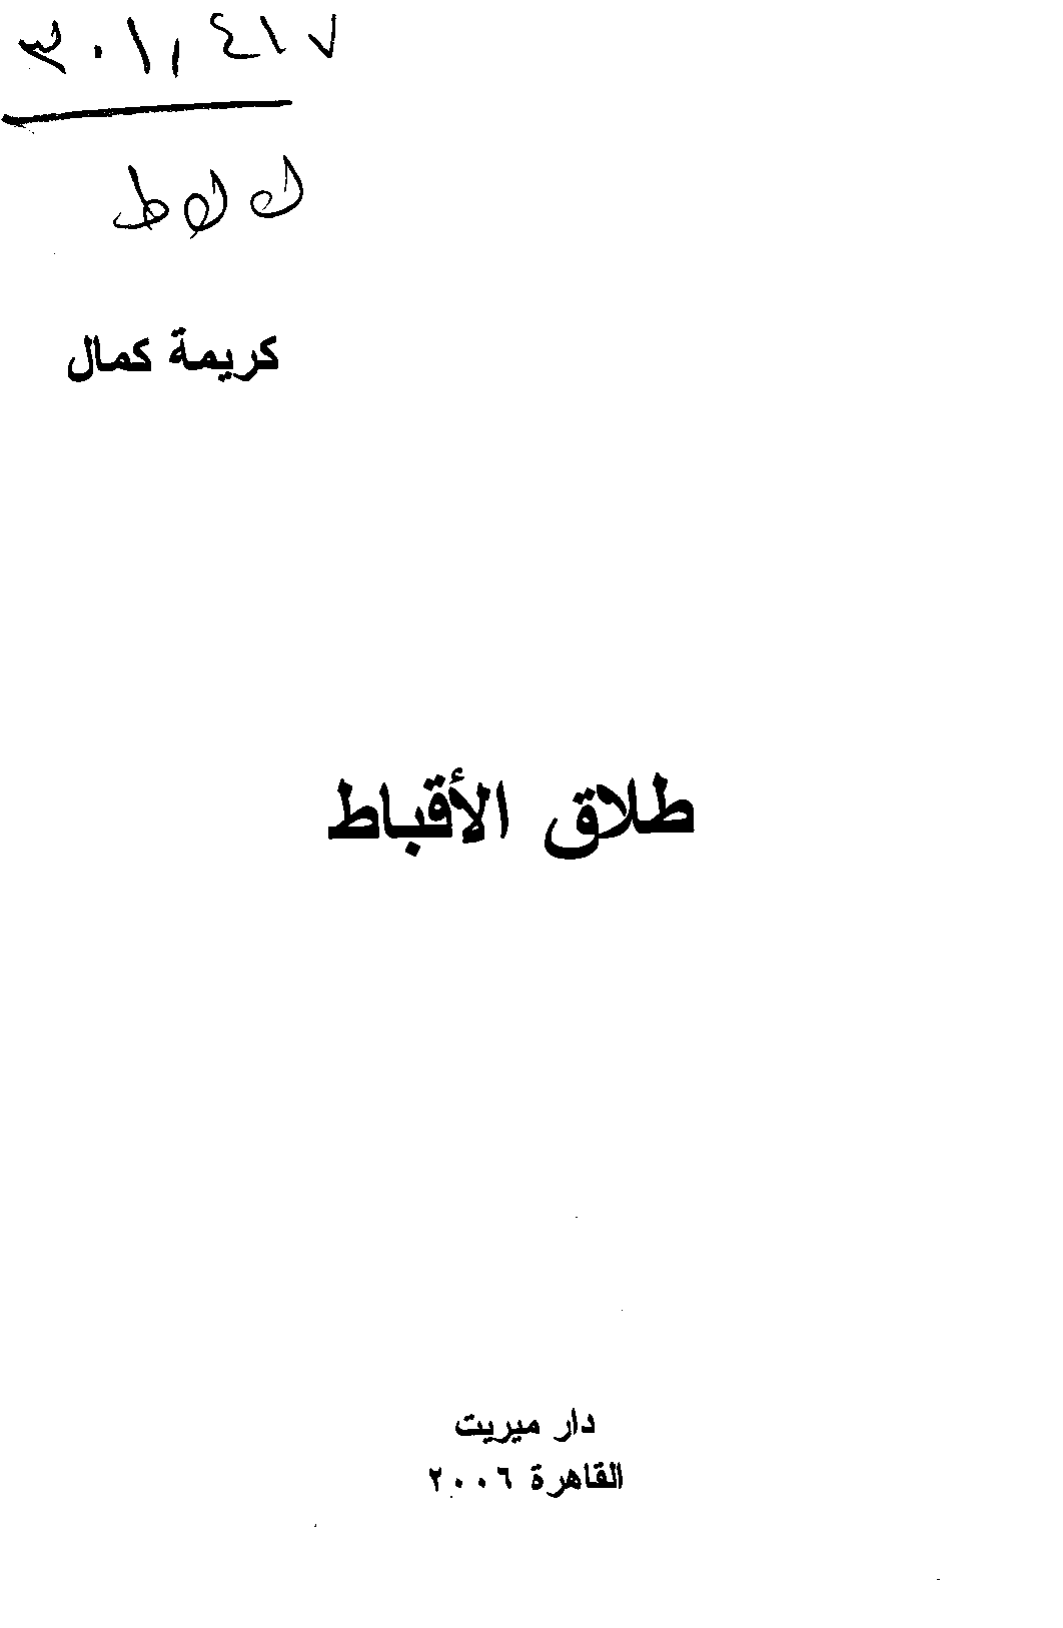 ٣٠١,٤١٧
ك ك ط
كريمة كمال
طلاق الأقباط
دار ميريت
القاهرة ٢٠٠٦